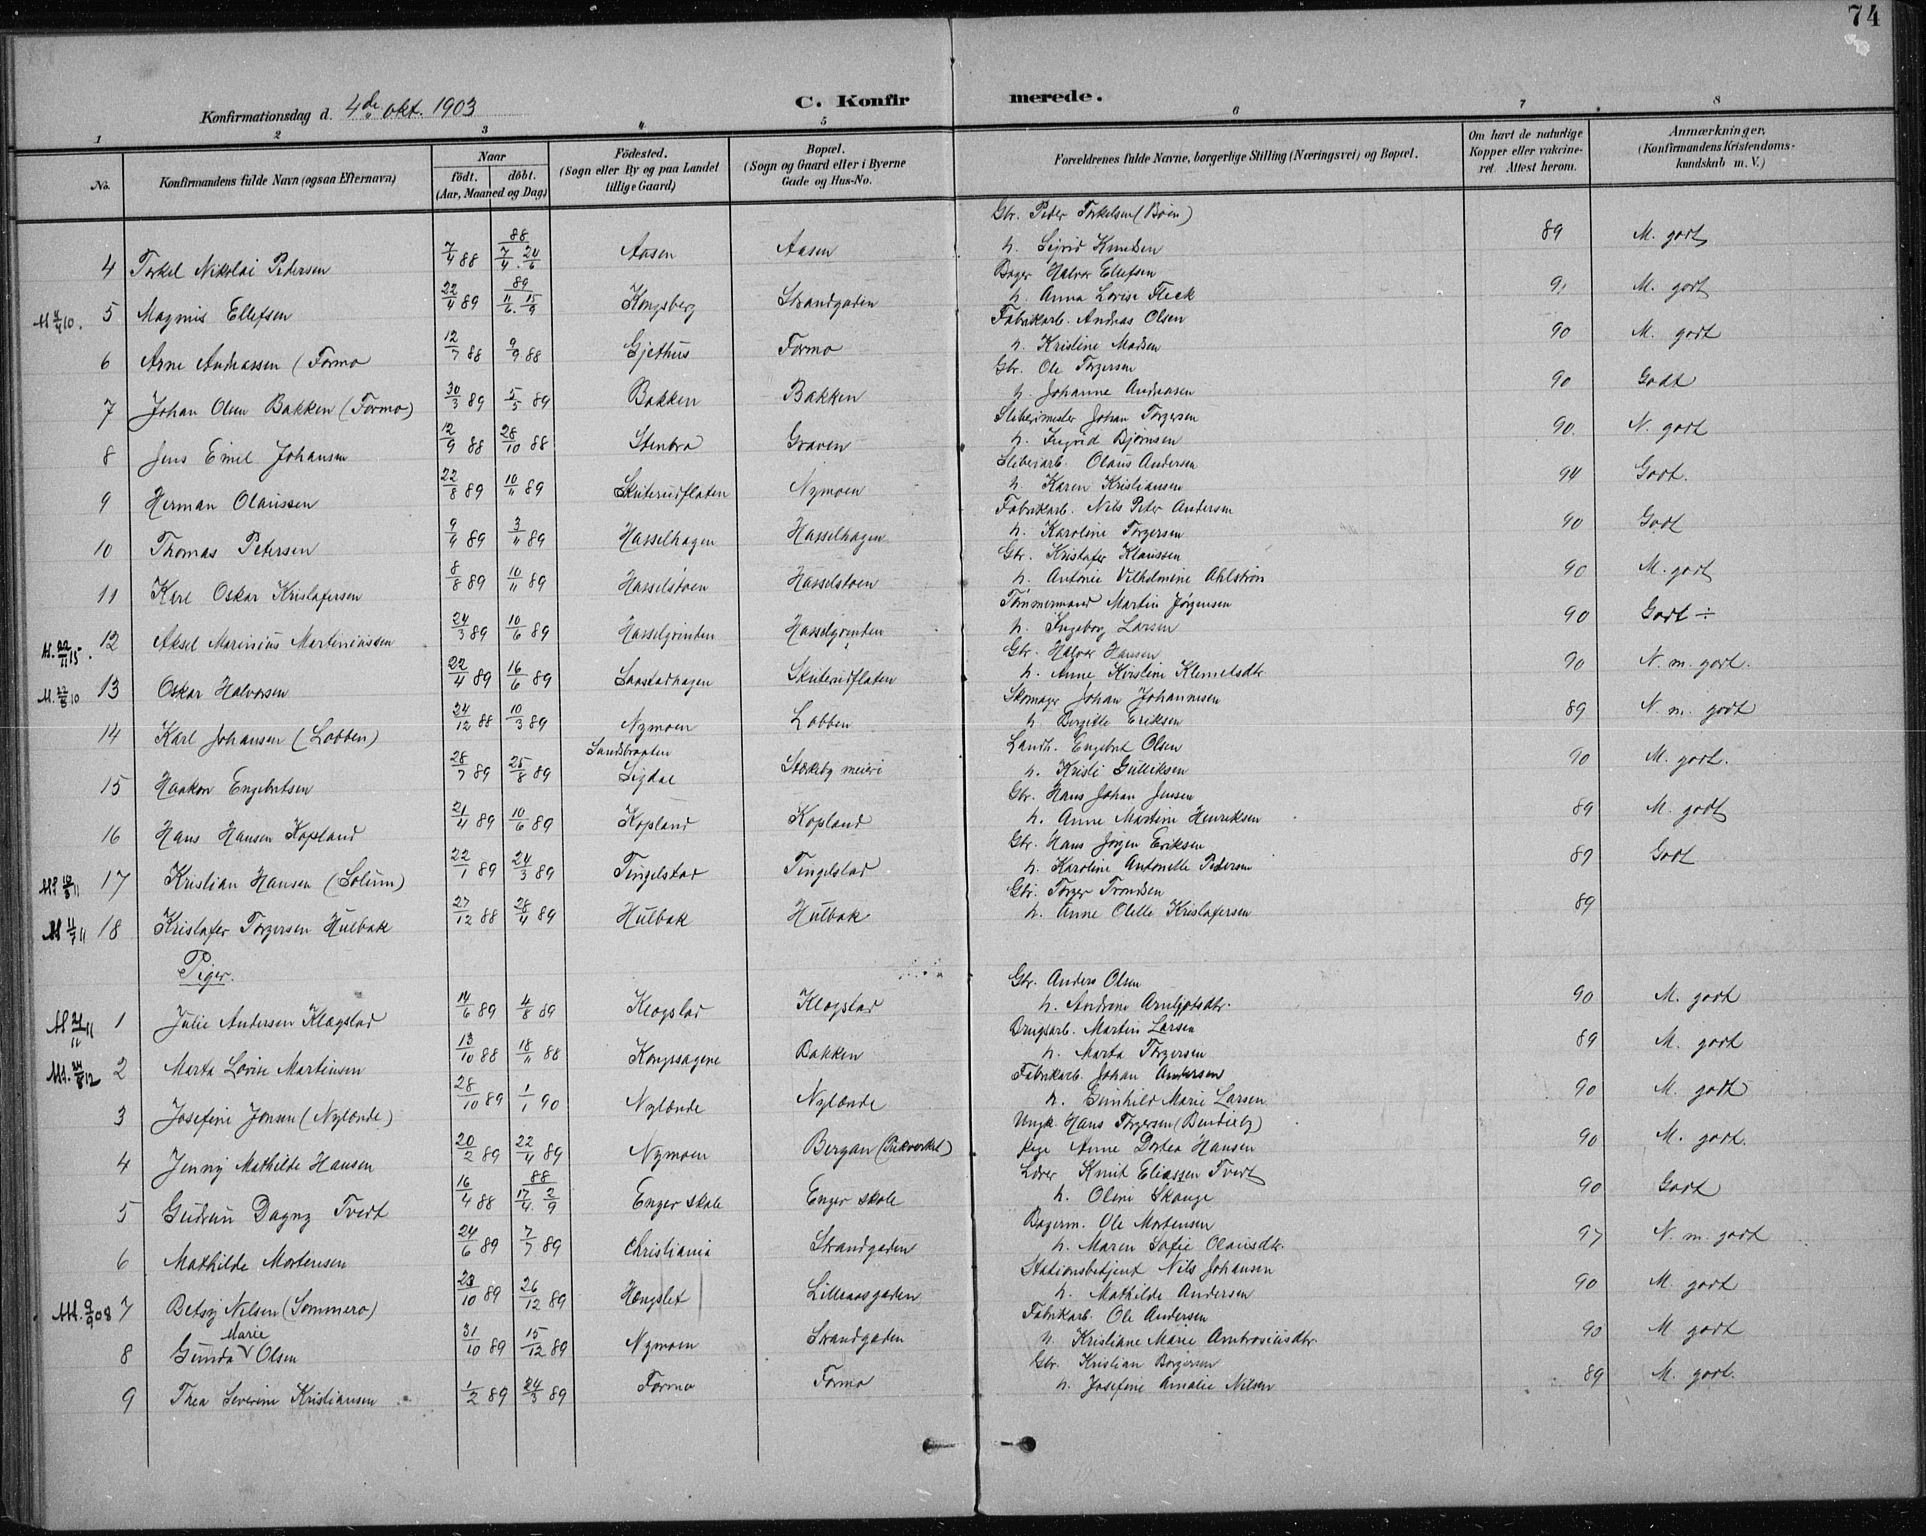 74
Konfirmationsdag d. 4de okt. 1903
C. Konfir merede.
1 2 3 4 5 6 7 8
No.
Konfirmandens fulde Navn (ogsaa Efternavn)
Naar
födt. döbt.
(Aar, Maaned og Dag)
Födested.
(Sogn eller By og paa Landet
tillige Gaard)
Bopæl.
(Sogn og Gaard eller i Byerne
Gade og Hus-No.
Forældrenes fulde Navne, borgerlige Stilling (Næringsvei) og Bopæl.
Om havt de naturlige
Kopper eller vakcine-
ret. Attest herom.
Anmærkninger.
(Konfirmandens Kristendoms-
kundskab m. V.)
Gbr. Peder Torkelsen (Böen)
4 Torkel Nikolai Pedersen 7/4 88 88 7/4. 24/6 Aasen Aasen h. Sigrid Knudsen 89 M. godt
Bager Halvor Ellefsen
M 4/4 10. 5 Magnus Ellefsen 22/4 89 89 11/6. 15/9 Kongsberg Strandgaden h. Anna Lovise Fleck 91 M. godt
Fabrikarb. Andreas Olsen
6 Arne Andreassen (Formo 12/7 88 9/9 88 Gjethus Formo h. Kristine Madsen 90 M. godt
Gbr. Ole Torgersen
7 Johan Olsen Bakken (Formo) 30/3 89 5/5 89 Bakken Bakken h. Johanne Andreasen 90 Godt
Sliberimester Johan Torgersen
8 Jens Emil Johansen 12/9 88 28/10 88 Stenbro Graven h. Ingrid Bjørnsen 90. N. godt
Sliberiarb. Olaus Andersen
9 Herman Olaussen 22/8 89 10/11 89 Skuterudflaten Nymoen h. Karen Kristiansen 94 Godt.
Fabrikarb. Nils Peter Andersen
10 Thomas Petersen 9/9 89 3/11 89 Hasselhagen Hasselhagen h. Karoline Torgersen 90 Godt
Gbr. Kristofer Klaussen
11 Karl Oskar Kristofersen 8/8 89 10/11 89 Hasselstøen Hasselstøen h. Antonie Vilhelmine Ahlstrøm 90 M. godt
Tømmermand Martin Jørgensen
M. 22/11 15. 12 Aksel Marinius Martiniussen 24/3 89 10/6 89 Hasselgrinden Hasselgrinden h. Ingeborg Larsen 90 Godt ÷
Gbr. Halvor Hansen
13 Oskar Halvorsen 22/4 89 16/6 89 Saastadhagen Skuterudflaten h. Anne Kirstine Klemetsdtr. 90 N. m. godt.
Skomager Johan Johannesen
14 Karl Johansen (Lobben) 24/12 88 10/3 89 Nymoen Lobben h. Bergitte Eriksen 89 N. m. godt
Sandsbraaten
Landh. Engebret Olsen
15 Haakon Engebretsen 28/7 89 25/8 89 Sigdal Stokeby meieri h. Kristi Gulliksen 90 M. godt.
Gbr. Hans Johan Jensen
16 Hans Hansen Kopland 21/4 89 10/6 89 Kopland Kopland h. Anne Martine Henriksen 89 M. godt
Gbr. Hans Jørgen Eriksen
17 Kristian Hansen (Solum) 22/1 89 24/3 89 Tingelstad Tingelstad h. Karoline Antonette Pedersen 89 Godt
Gbr. Torger Trondsen
18 Kristofer Torgersen Hulbak 27/12 88 28/4 89 Hulbak Hulbak h. Anne Olette Kristofersen 89
Piger.
Gbr. Anders Olsen
1 Julie Andersen Klogstad 14/6 89 4/8 89 Klopstad Klopstad h. Andrine Arnljotsdtr. 90 M. godt
Brugsarb. Martin Larsen
M. 24/8 12 2 Marta Lovise Martinsen 13/10 88 18/11 88 Kongssagene Bakken h. Marta Torgersen 89 M. godt
Fabrikarb. Johan Andersen
3 Josefine Jonsen (Nylænde) 28/10 89 1/1 90 Nylænde Nylænde h. Gunhild Marie Larsen 90 M. godt
Ungk. Hans Torgersen (Benderby)
4 Jenny Mathilde Hansen 20/2 89 22/4 89 Nymoen Bergan (Pukverket) pige Anne Dortea Hansen 90 M. godt.
Lærer Knut Eliassen Tvedt
5 Gudrun Dagny Tvedt 16/4 88 88 17/4. 2/9 Enger skole Enger skole h. Oline Skauge 90 Godt
Bagerm. Ole Mortensen
6 Mathilde Mortensen 24/6 89 7/7 89 Christiania Strandgaden h. Maren Sofie Olausdtr. 97 N. m. godt
Stationsbetjent Nils Johansen
M. 9/9 08 7 Betsy Nilsen (Sommero) 23/10 89 26/12 89 Hengslet Lilleaasgaden h. Mathilde Andersen 90 M. godt
Fabrikarb. Ole Andersen
Marie
8 Gunda Olsen 31/10 89 15/12 89 Nymoen Strandgaden h. Kristiane Marie Ambrosiusdtr. 90 M godt
Gbr. Kristian Borgersen
9 Thea Severine Kristiansen 1/2 89 24/3 89 Formo Formo h. Josefine Amalie Nilsen 89 M. godt.